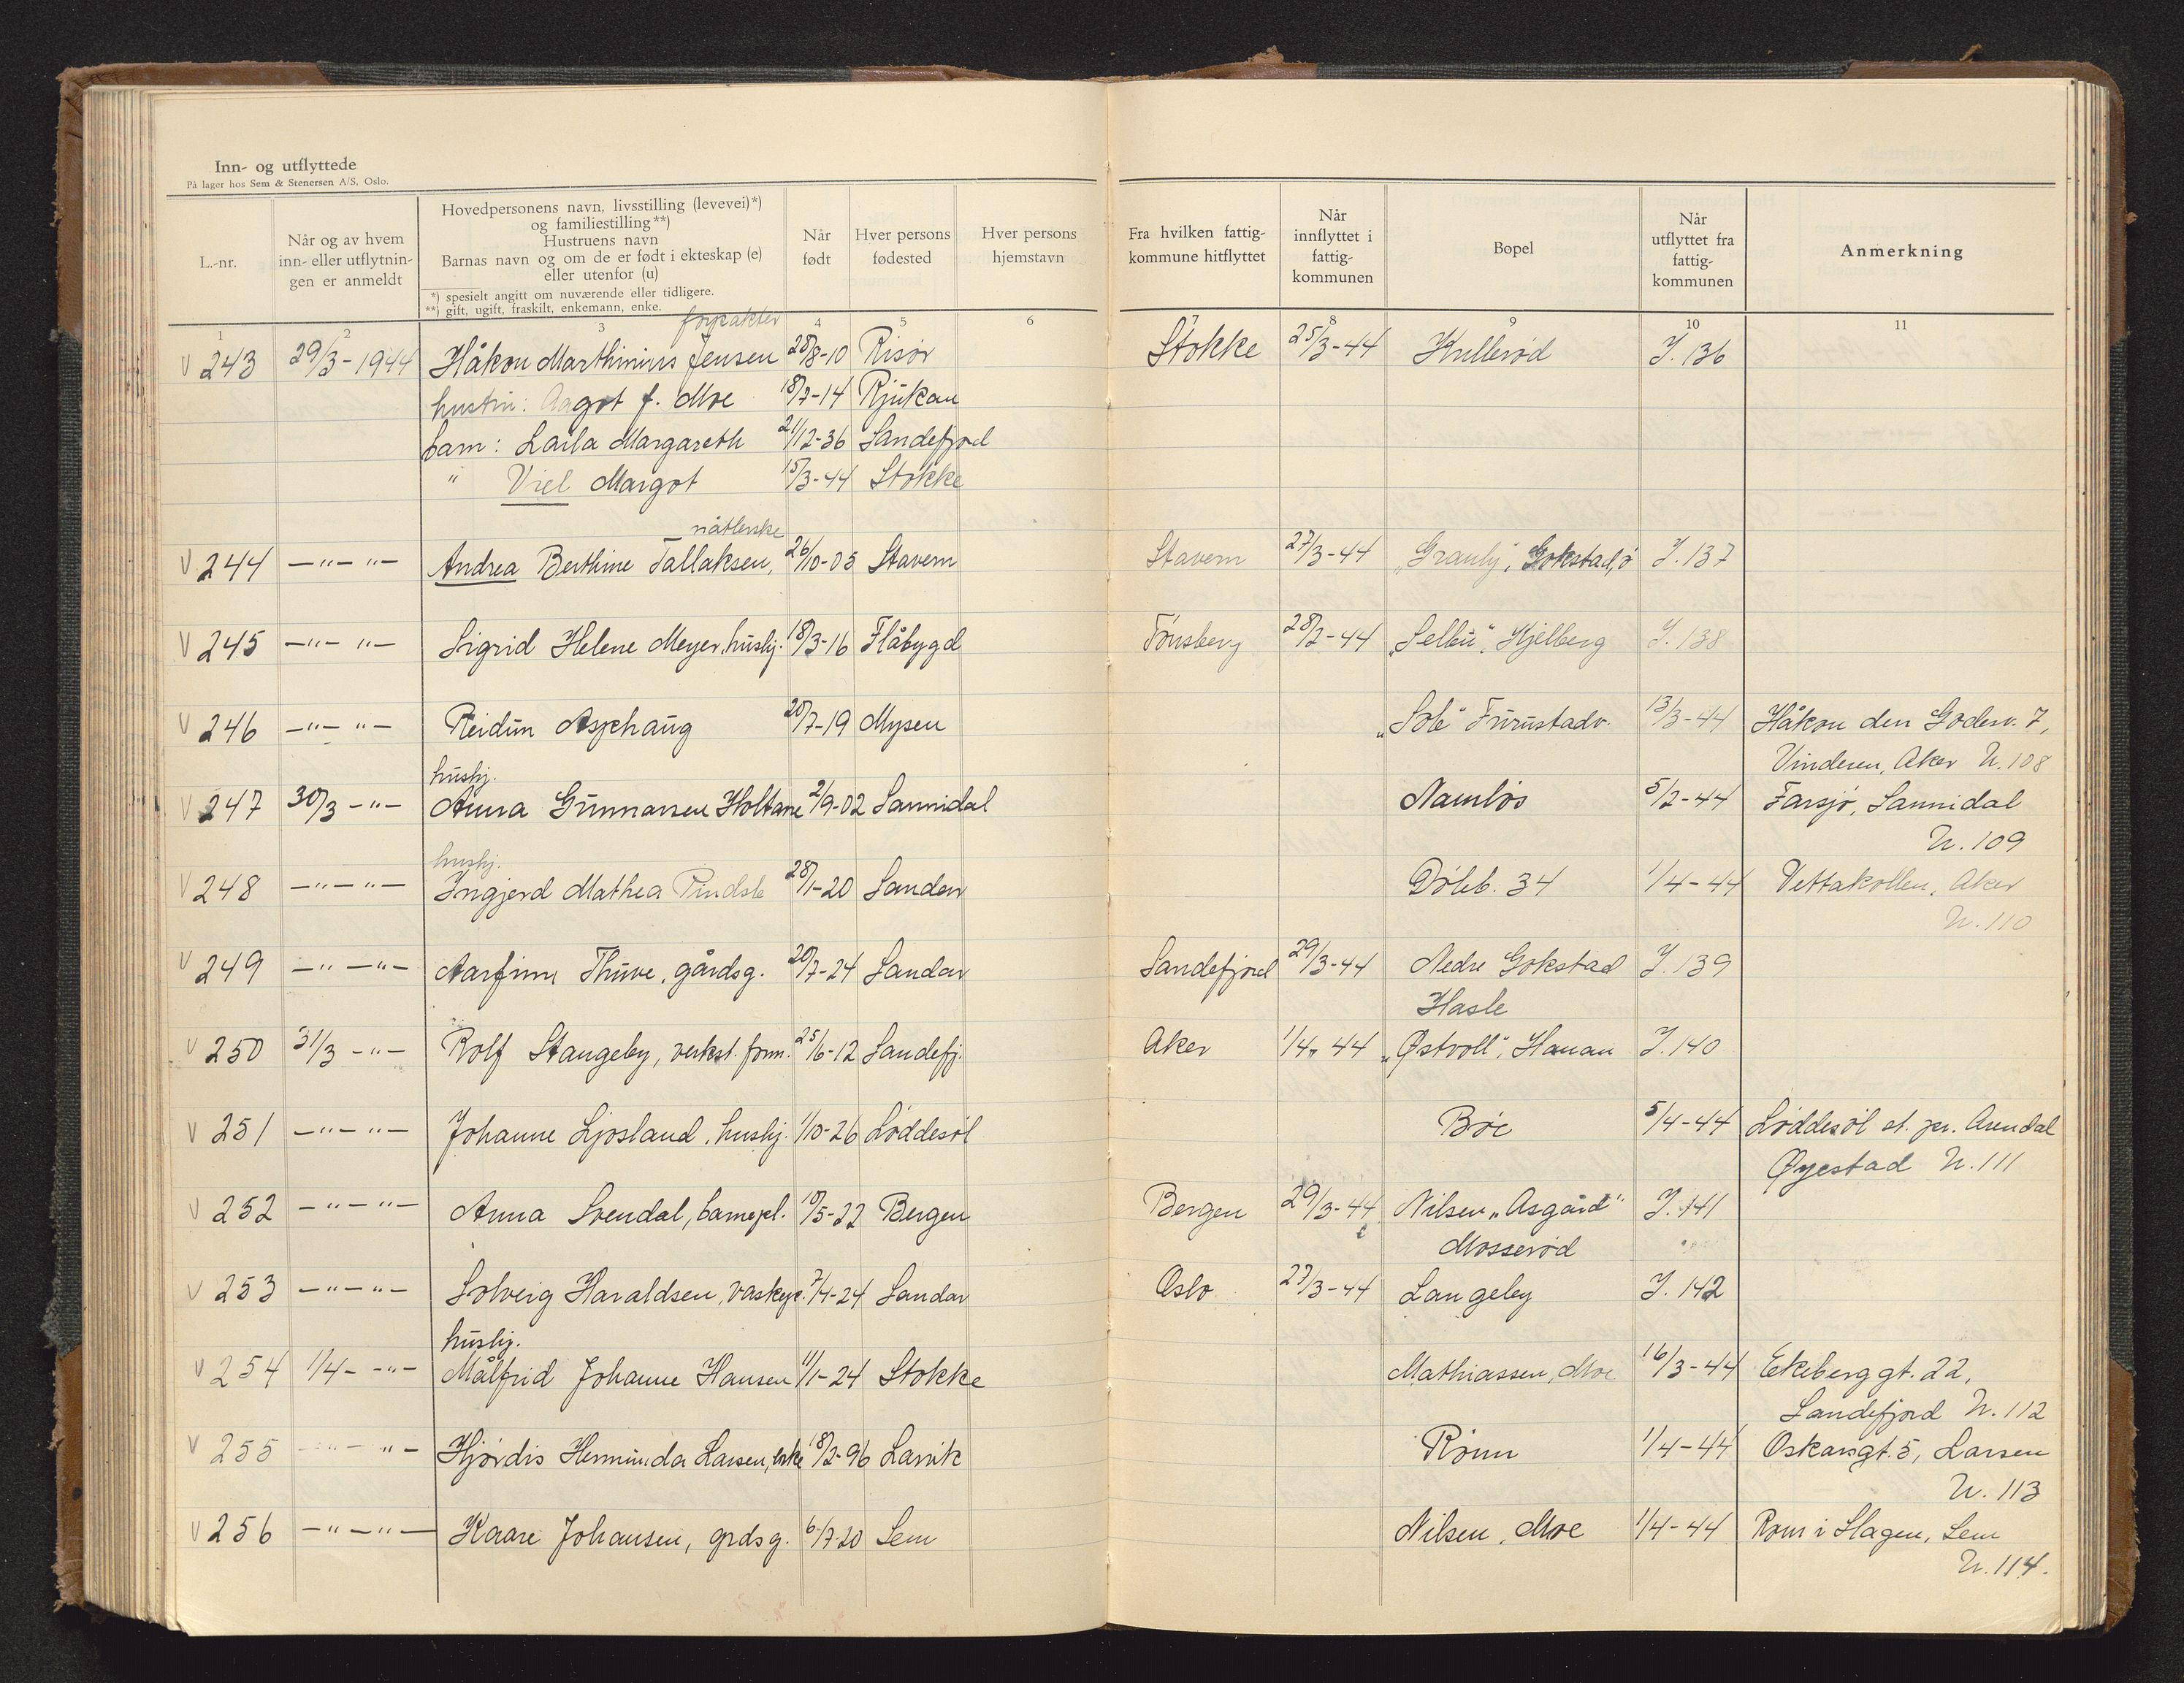 Inn- og utflyttede
På lager hos Sem & Stenersen A/S, Oslo.
L.-nr.
Når og av hvem
inn- eller utflytnin-
gen er anmeldt
Hovedpersonens navn, livsstilling (levevei)*)
og familiestilling**)
Hustruens navn
Barnas navn og om de er født i ekteskap (e)
eller utenfor (u)
*) spesielt angitt om nuværende eller tidligere.
**) gift, ugift, fraskilt, enkemann, enke.
Når
født
Hver persons
fødested
Hver persons
hjemstavn
Fra hvilken fattig-
kommune hitflyttet
Når
innflyttet i
fattig-
kommunen
Bopel
Når
utflyttet fra
fattig-
kommunen
Anmerkning
1 2 3 4 5 6 7 8 9 10 11
V 243 29/3-1944 Håkon Marthinius Jensen 28/8-10 Risør Stokke 25/3-44 Hullerød I. 136
hustru: Aagot f. Moe 18/7-14 Rjukan
barn: Laila Margareth 21/12-36 Sandefjord
" Viel Margot 15/3-44 Stokke
nåtlerske
V 244 -"- "- Andrea Berthine Tallaksen, 26/10-05 Stavern Stavern 27/3-44 "Granly", Gokstad, ø I. 137
V 245 -"- "- Sigrid Helene Meyer, hushj. 18/3-16 Flåbygd Tønsberg 28/2-44 "Selbu", Hjelberg I. 138
V 246 -"- "- Reidun Asphaug 20/7-19 Mysen "Sole" Furustadv. 13/3-44 Håkon den Godesv. 7,
Vinderen, Aker U. 108
hushj.
V 247 30/3 -"- Anna Gunnarsen Holtane 2/9-02 Sannidal Namløs 5/2-44 Farsjø, Sannidal
U. 109
hushj.
V 248 -"- "- Ingjerd Mathea Pindsle 28/1-20 Sandar Døleb. 34 1/4-44 Vettakollen, Aker
U. 110
V 249 -"- "- Aarfinn Thuve, gårdsg. 20/7-24 Sandar Sandefjord 29/3-44 Nedre Gokstad I. 139
Hasle
V 250 31/3 -"- Rolf Stangeby, verkst. form. 25/6-12 Sandefj. Aker 1/4-44 "Østvoll", Hauan I. 140
V 251 -"- "- Johanne Ljosland, hushj. 1/10-26 Løddesøl Bøe 5/4-44 Løddesøl st. pr. Arendal
Øyestad U. 111
V 252 -"- "- Anna Svendal, barnepl. 10/5-22 Bergen Bergen 29/3-44 Nilsen "Asgård" I. 141
Mosserød
V 253 -"- "- Solveig Haraldsen, vaskep. 7/4-24 Sandar Oslo 27/3-44 Langeby I. 142
hushj.
V 254 1/4- -"- Målfrid Johanne Hansen 11/1-24 Stokke Mathiassen, Moe 16/3-44 Ekeberggt. 22,
Sandefjord U. 112
V 255 -"- "- Hjørdis Hermunda Larsen, enke 18/2-96 Larvik Rønn 1/4-44 Oskarsgt. 5, Larsen
U. 113
V 256 -"- "- Kaare Johansen, grdsg. 6/7-20 Sem Nilsen, Moe 1/4-44 Rom i Slagen, Sem
U. 114.